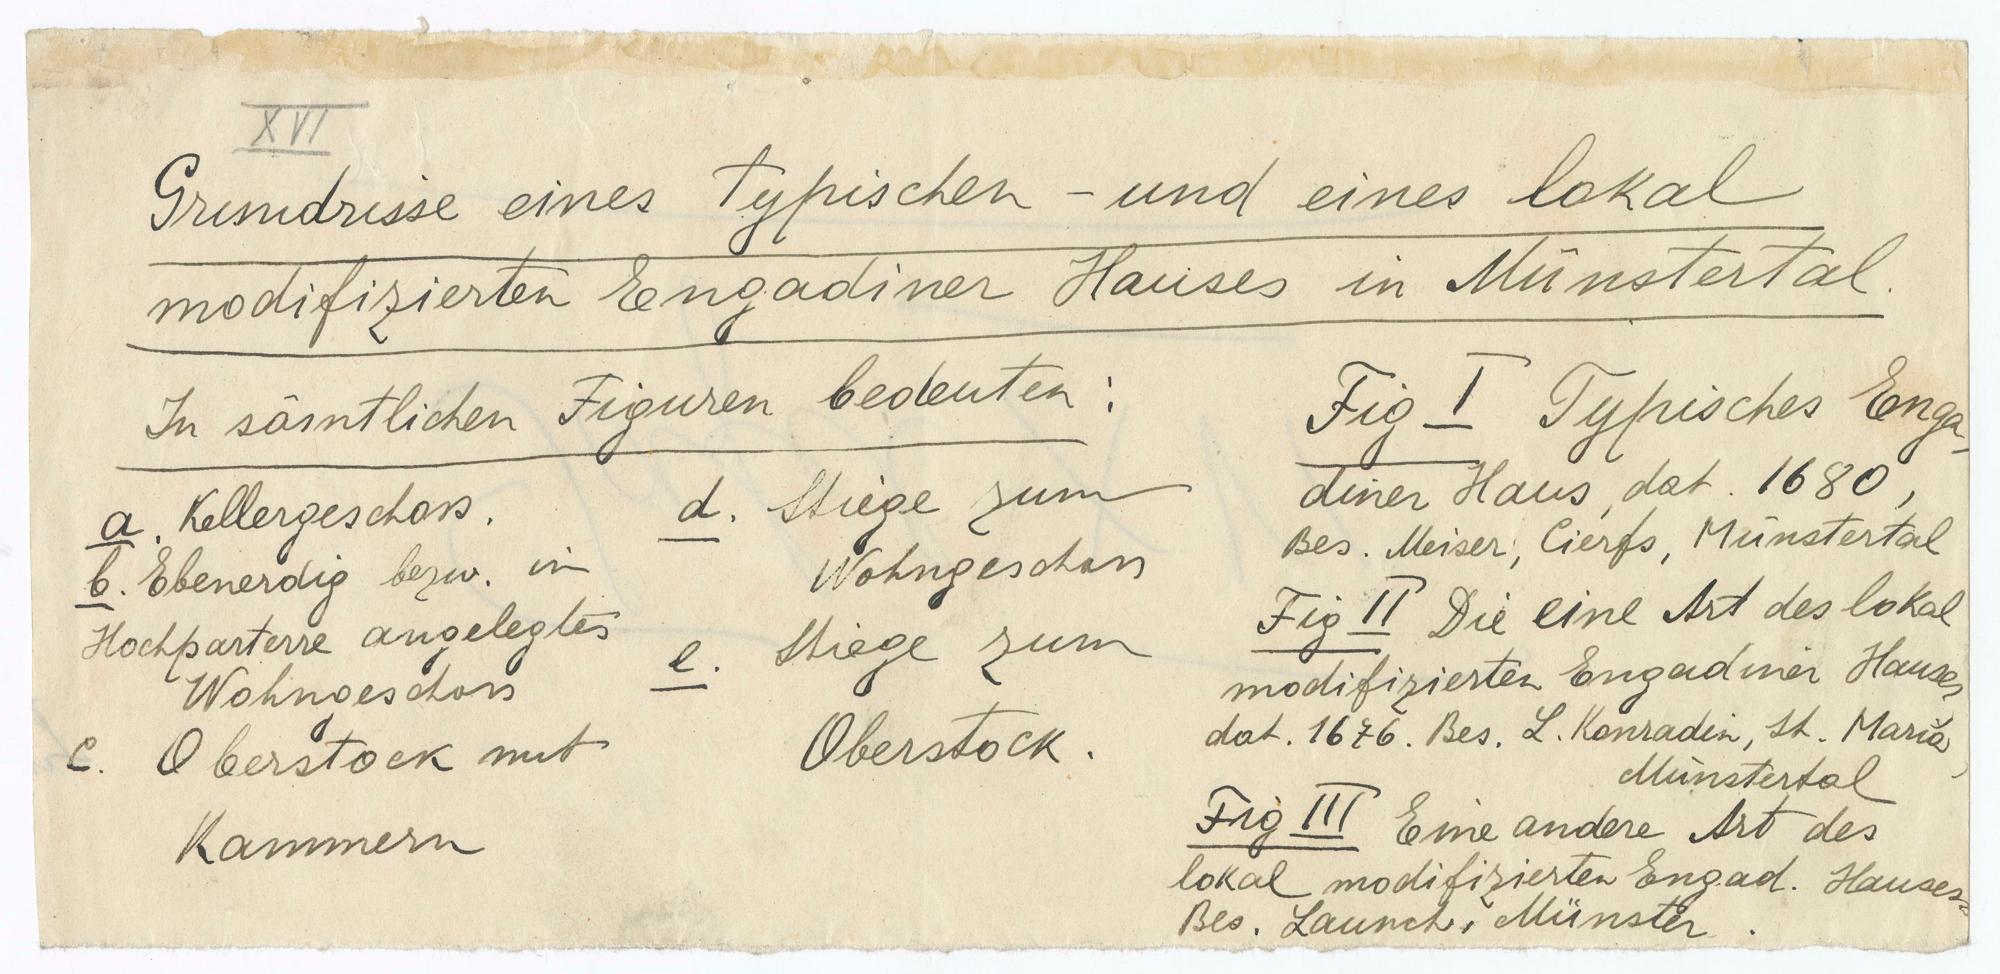 XVI
Grundrisse eines typischen - und eines lokal
modifizierten Engadiner Hauses in Münstertal.
In sämtlichen Figuren bedeuten:
a. Kellergeschoss.
b. Ebenerdig bezw. in
Hochparterre angelegtes
Wohngeschoss
c. Oberstock mit
Kammern
d. Stiege zum
Wohngeschoss
e. Stiege zum
Oberstock.
Fig I Typisches Enga-
diner Haus, dat. 1680,
Bes. Meiser, Cierfs, Münstertal
Fig II Die eine Art des lokal
modifizierten Engadiner Hauses,
dat. 1676. Bes. L. Konradin, St. Maria,
Münstertal
Fig III Eine andere Art des
lokal modifizierten Engad. Hauses
Bes. Launch, Münster.